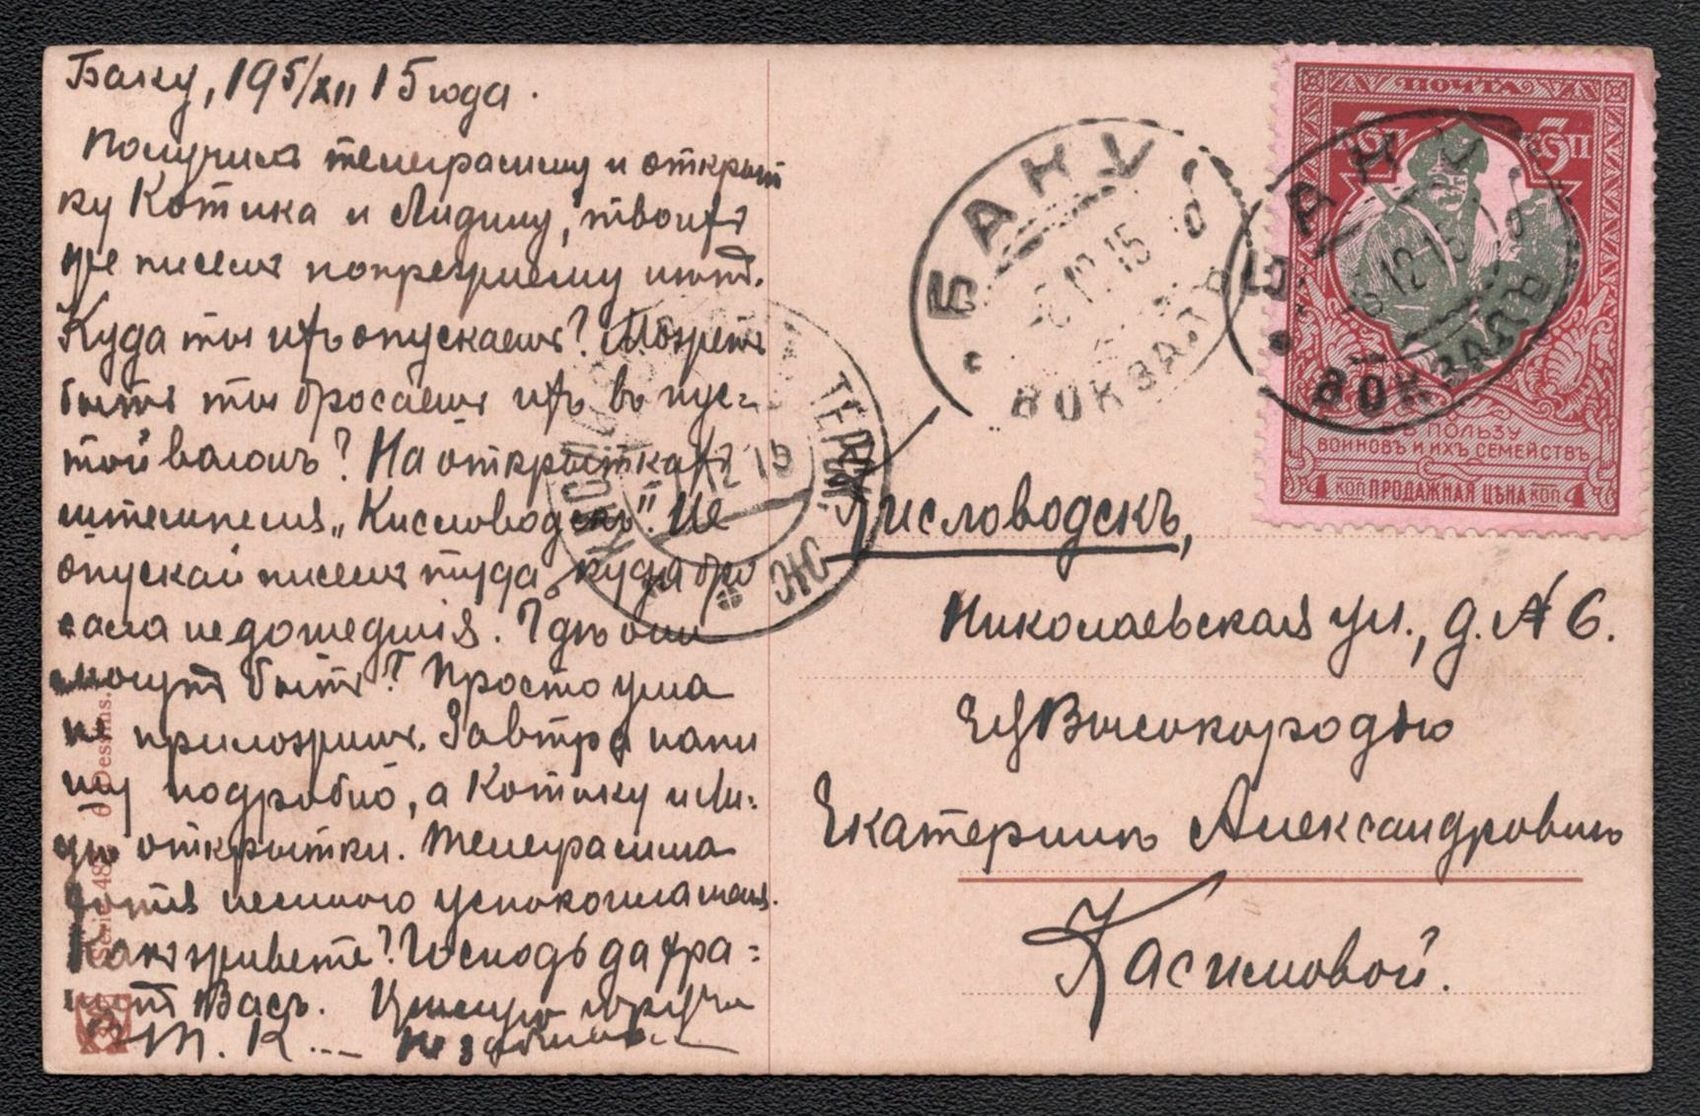 Баку, 19 5/XII 15 года.
Получилъ телеграмму и открыт
ку Котика и Лидину, твоихъ
же писемъ попрежнему нѣтъ.
Куда ты ихъ опускаешь? Можетъ
быть ты бросаешь ихъ въ пус=
той вагонъ? На открыткахъ
штемпеля „Кисловодскъ". Не
опускай писемъ туда, куда бро
сала недошедшія. Гдѣ они
могутъ быть? Просто ума
не приложишь. Завтра напи
шу подробно, а Котику и Ли=
дѣ открытки. Телеграмма
хотя немного успокоила меня.
Какъ живете? Господь да хра=
нитъ Васъ. Цѣлую
Т. К...
ПОЧТА
3 КОП
КОП 3
ВЪ ПОЛЬЗУ
ВОИНОВЪ И ИХЪ СЕМЕЙСТВЪ
1 КОП ПРОДАЖНАЯ ЦѢНА КОП 1
БАКУ
12 15
ВОКЗАЛЪ
БАКУ
12 15
ВОКЗАЛЪ
КИСЛОВОДСКЪ ТЕРСК.
12 15
Кисловодскъ,
Николаевская ул., д. № 6.
Ея Высокородію
Екатеринѣ Александровнѣ
Касимовой.
Dessins.
Serie 48